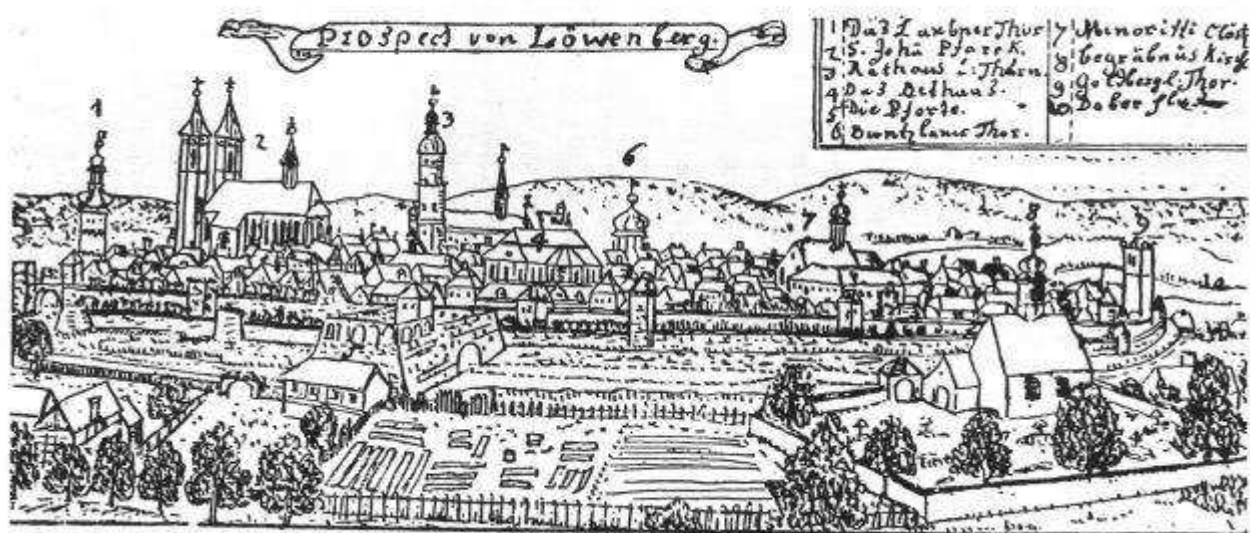 Prospect von Löwenberg.
1 Daß Laubner Thor
2 S. Joha Pfarrk.
3 Rathaus u: Thurn.
4 Daß Bethaus.
5 Die Pforte.
6 Buntzlauer Thor.
7 Minoritti Clost
8 begräbnüs Kirch
9 Goldbergl. Thor.
10 Bober flus
1
2
3
4
6
7
8
9